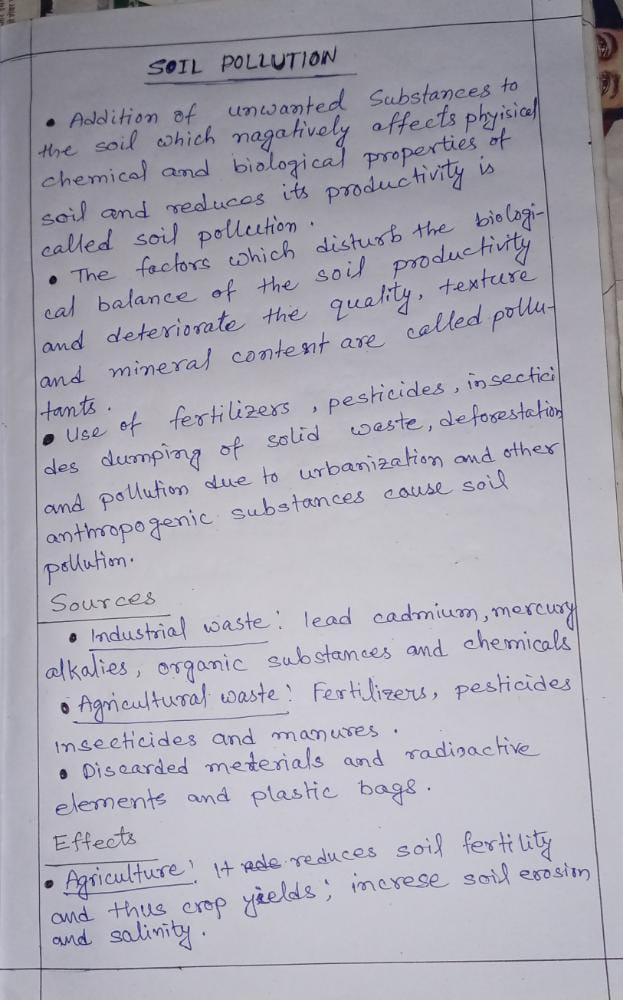 SOIL POLLUTION
• Addition of unwanted Substances to
the soil which nagatively affects phyisical
chemical and biological properties of
soil and reduces its productivity is
called soil pollution.
• The factors which disturb the biologi-
cal balance of the soil productivity
and deteriorate the quality, texture
and mineral content are called pollu-
tants.
• Use of fertilizers, pesticides, insectici
des dumping of solid waste, deforestation
and pollution due to urbanization and other
anthropogenic substances cause soil
pollution.
Sources
• Industrial waste: lead cadmium, mercury
alkalies, organic substances and chemicals
• Agricultural waste: Fertilizers, pesticides
Insecticides and manures.
• Discarded meterials and radioactive
elements and plastic bags.
Effects
• Agriculture: It reduces soil fertility
and thus crop yields; increse soil erosion
and salinity.